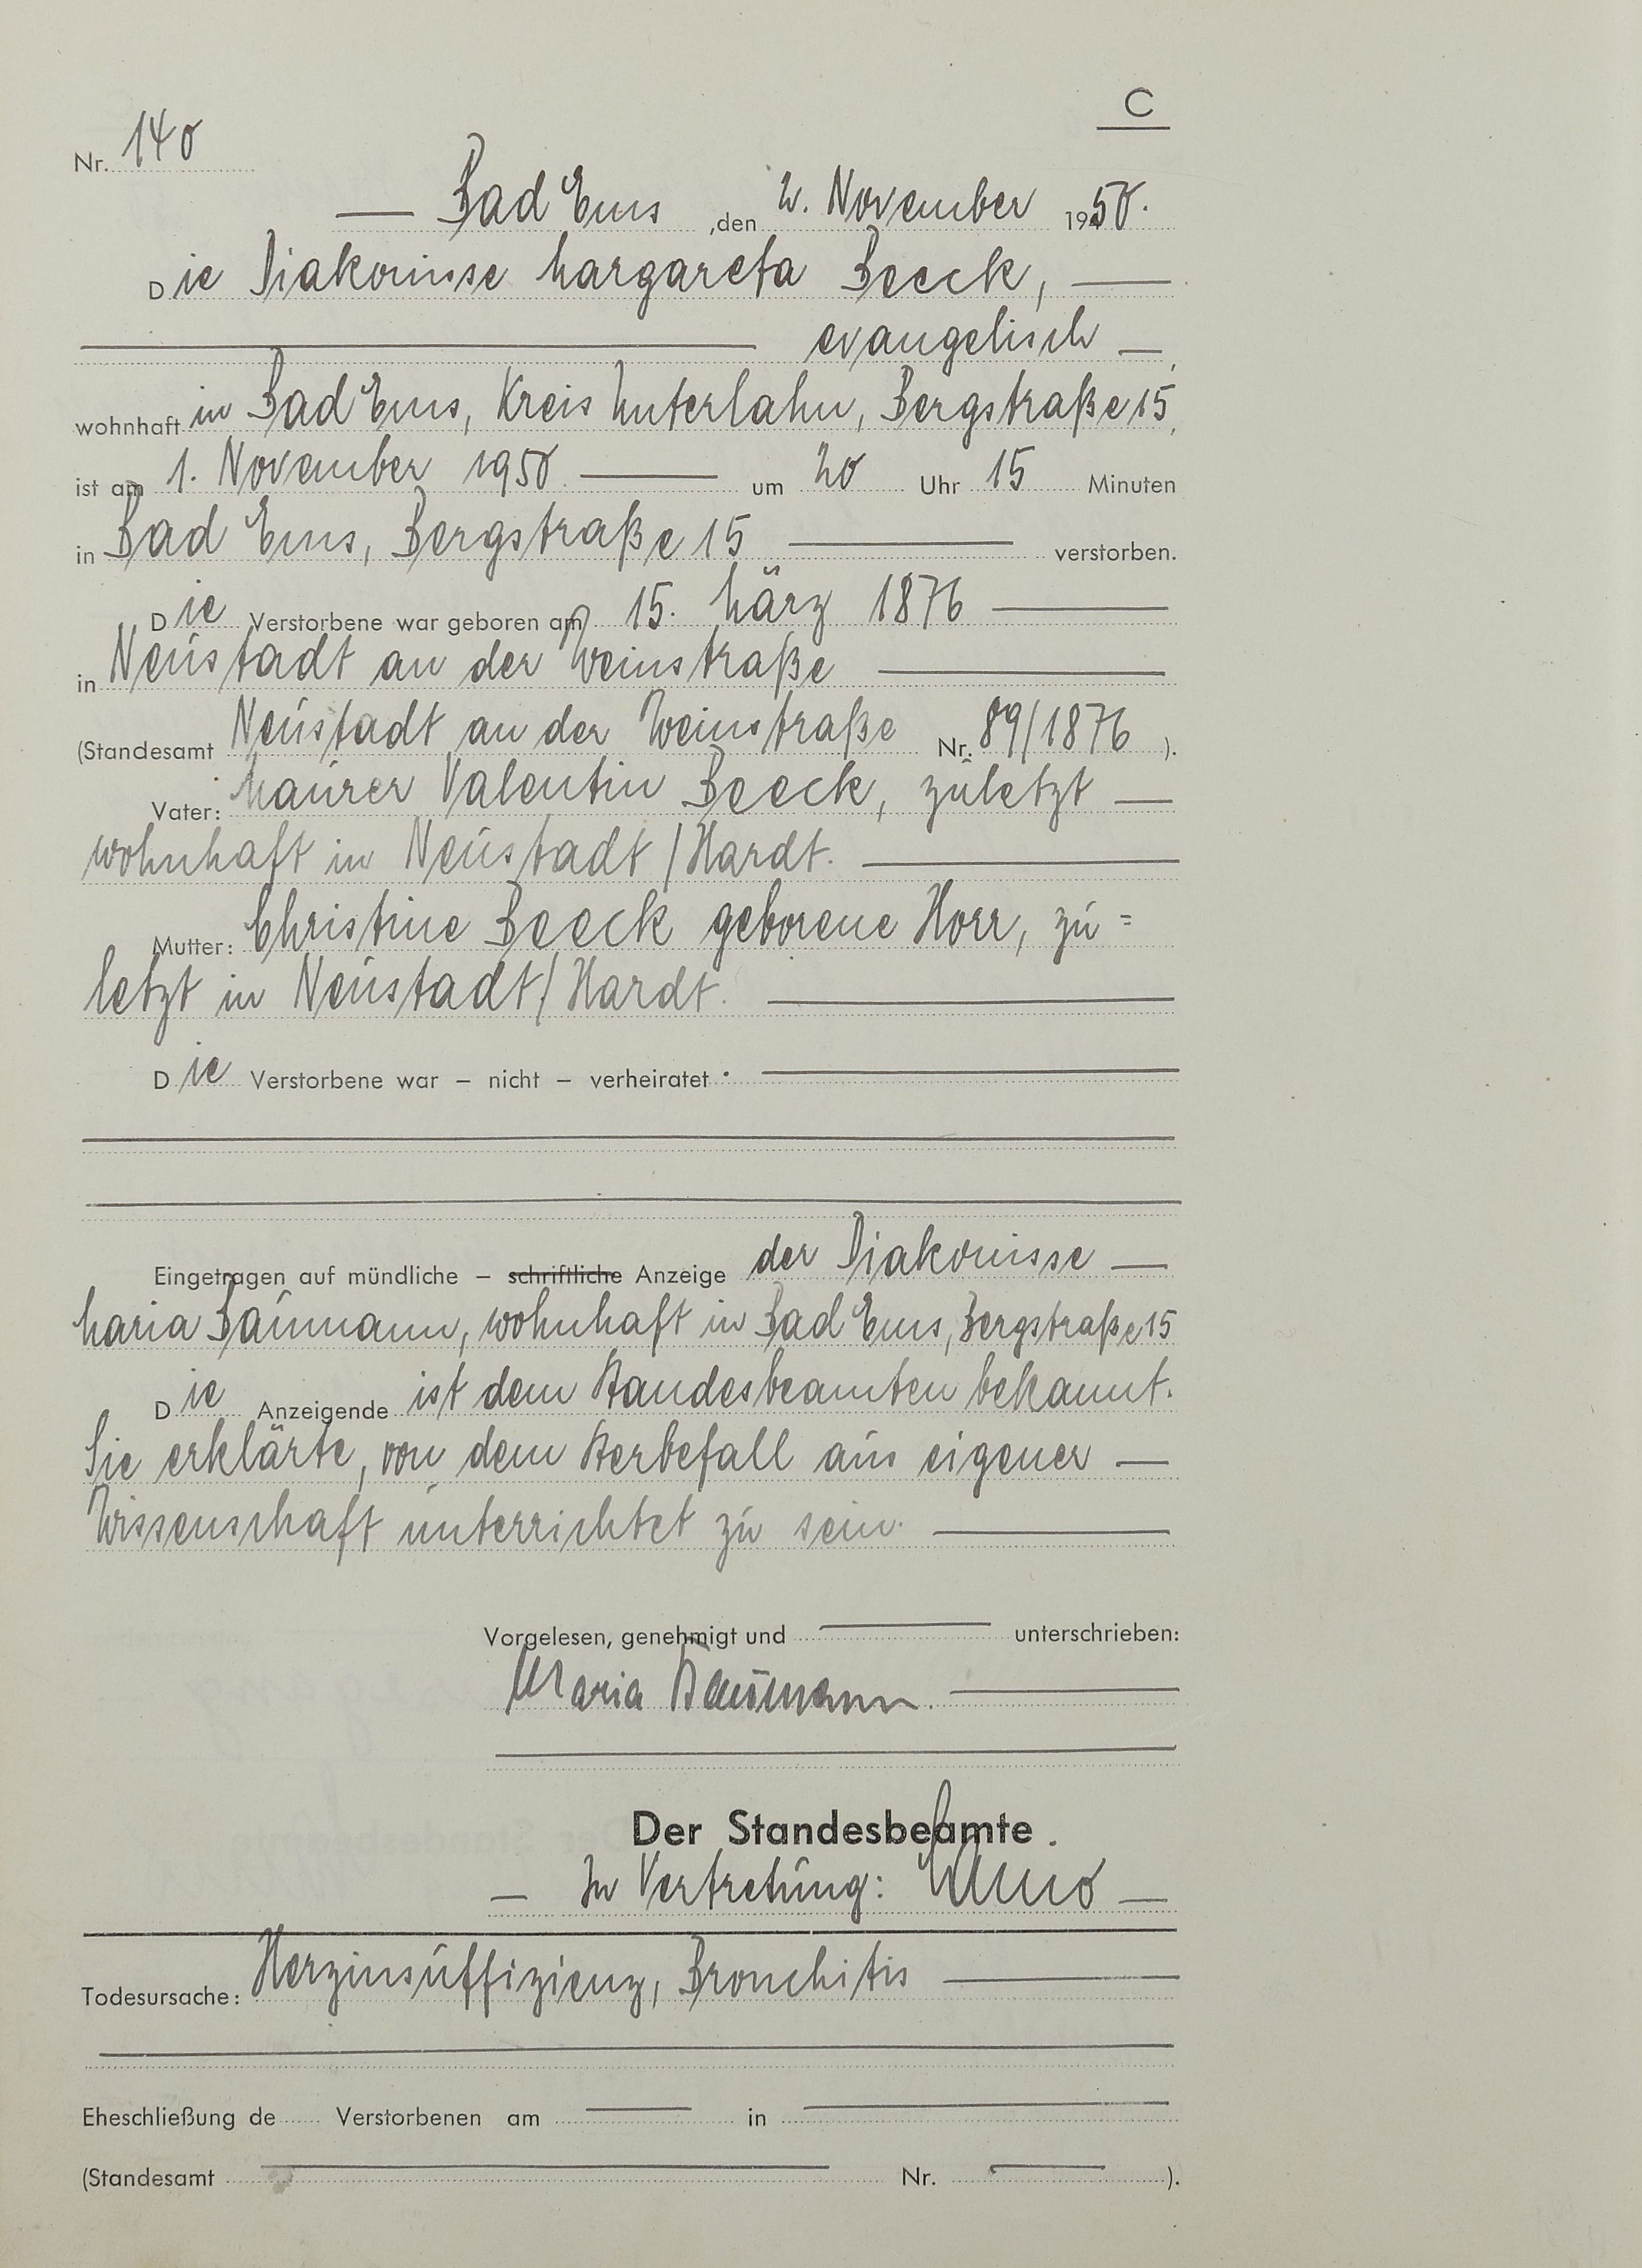 C
Nr. 140
Bad Ems, den 2. November 1950.
Die Diakonisse Margareta Beeck,
evangelisch
wohnhaft in Bad Ems, Kreis Unterlahn, Bergstraße 15,
ist am 1. November 1950 um 20 Uhr 15 Minuten
in Bad Ems, Bergstraße 15 verstorben.
Die Verstorbene war geboren am 15. März 1876
in Neustadt an der Weinstraße
(Standesamt Neustadt an der Weinstraße Nr. 89/1876 ).
Vater: Maurer Valentin Beeck, zuletzt
wohnhaft in Neustadt/Hardt.
Mutter: Christine Beeck geborene Horr, zu=
letzt in Neustadt/Hardt.
Die Verstorbene war – nicht – verheiratet.
Eingetragen auf mündliche – schriftliche Anzeige der Diakonisse
Maria Baumann, wohnhaft in Bad Ems, Bergstraße 15
Die Anzeigende ist dem Standesbeamten bekannt.
Sie erklärte, von dem Sterbefall aus eigener
Wissenschaft unterrichtet zu sein.
Vorgelesen, genehmigt und unterschrieben:
Maria Baumann.
Der Standesbeamte.
In Vertretung:
Todesursache: Herzinsuffizienz, Bronchitis
Eheschließung de Verstorbenen am in
(Standesamt Nr. ).